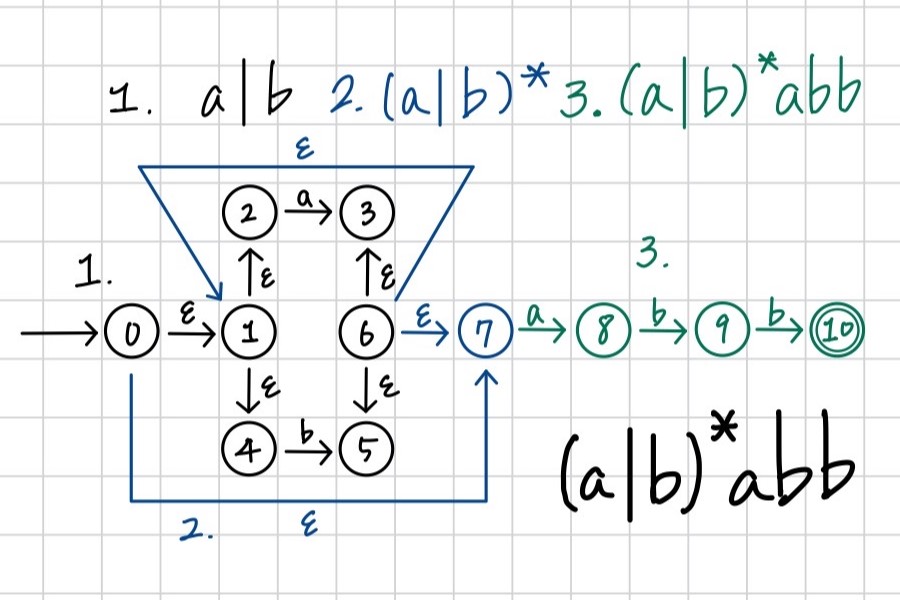 1. a|b 2. (a|b)* 3. (a|b)*abb
ε
2 a 3
1. ε ε 3.
0 ε 1 6 ε 7 a 8 b 9 b 10
ε ε
4 b 5
(a|b)*abb
2. ε